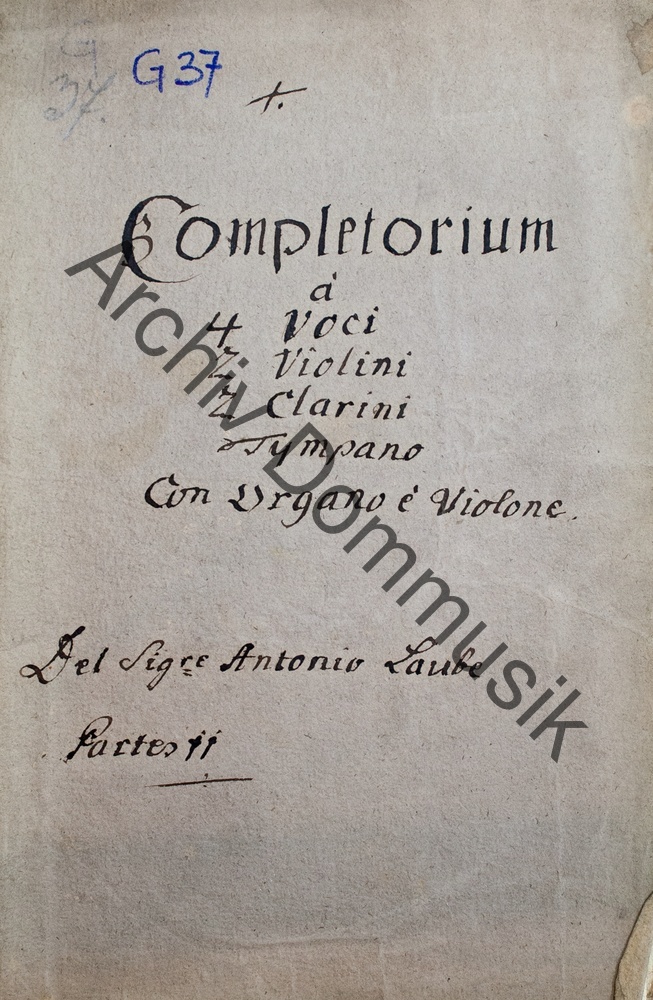 G 37
37.
+.
Completorium
à
4 Voci
2 Violini
2 Clarini
Tympano
Con Organo è Violone.
Del Sigre Antonio Laube
Partes 11
Archiv Dommusik